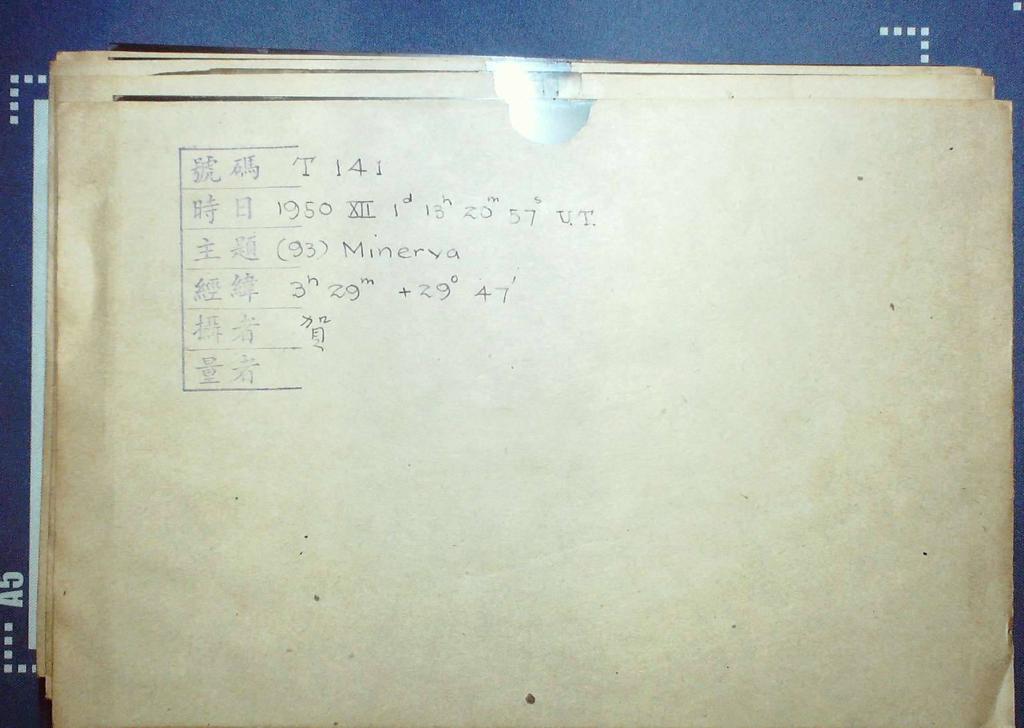 號碼 T 141
時日 1950 XII 1ᵈ 13ʰ 20ᵐ 57ˢ U.T.
主題 (93) Minerva
經緯 3ʰ 29ᵐ +29° 47'
攝者 賀
量者
A5